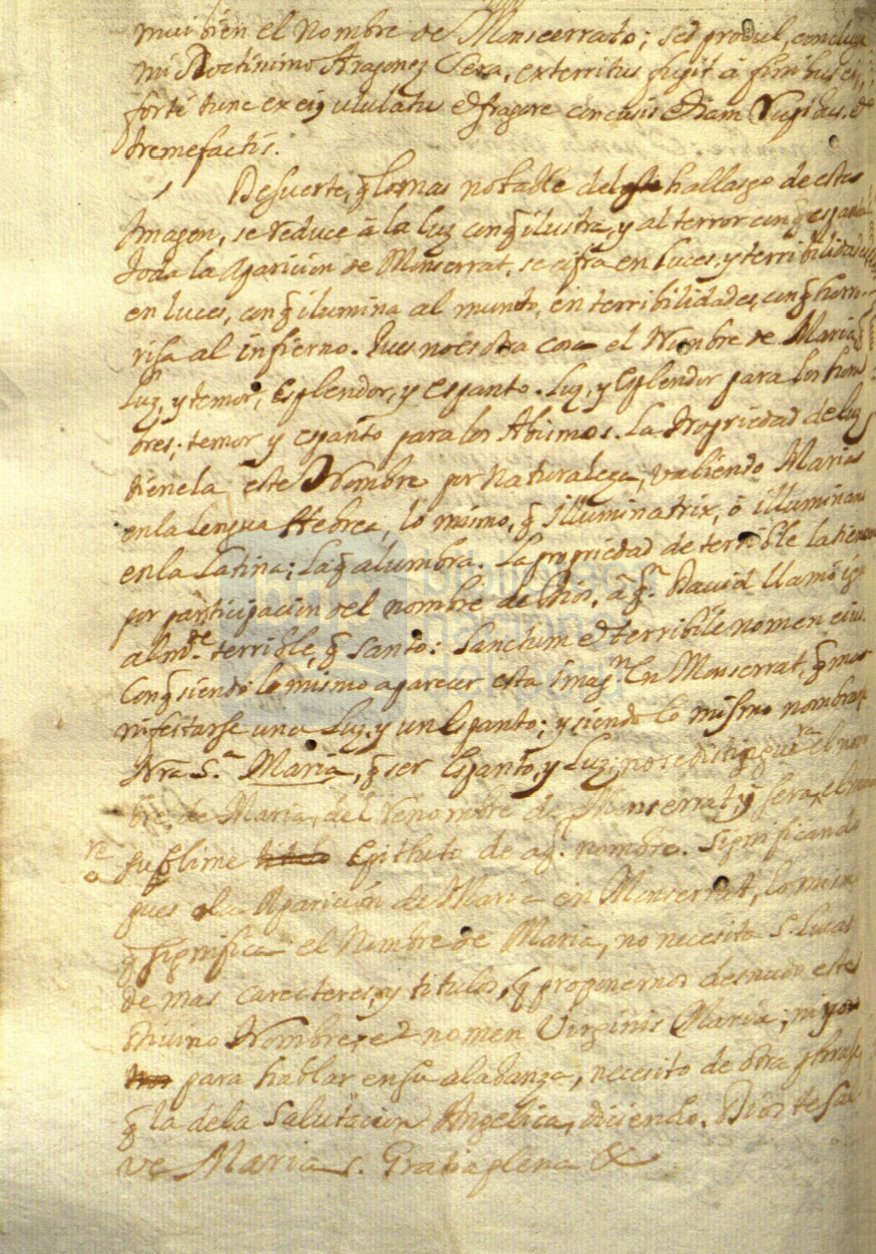 mui bien el Nombre de Monscerrato; sed prodiel, concluye
mi Doctissimo Aragonez Pera, exterritus fugit à finibus
forte tunc ex eiq ululatu et fragore concussis etiam rupibus. et
tremefactis.
Desuerte, q̃ lo mas notable del hallasgo de esta
Imagen, se reduce à la luz con q̃ ilustra, y al terror con q̃ espanta
toda la Aparicion de Monserrat, se cifra en luces, y terribilidades
en luces, con q̃ ilumina al mundo, en terribilidades, con q̃ horro-
risa al infierno. Pues no es otra cosa el Nombre de Maria
Luz, y temor, Esplendor, y espanto. Luz, y Esplendor para los hom
bres; temor y espanto para los Abismos. La Propriedad de luz
tienela este Nombre por Naturaleza, valiendo Maria
en la Lengua Hebrea, lo mismo, q̃ Illuminatrix, ò illuminans
en la Latina; La q̃ alumbra. La propriedad de terrible la tiene
por participacion del nombre de Dios, à q.n David llamò
al m.te terrible, q̃ santo: Sanctum et terribile nomen eius
Con q̃ siendo lo mismo aparecer esta imag.n En Monserrat, q̃ ma
nifestarse una Luz, y un Espanto; y siendo lo mismo nombrarse
Nra S.ra Maria, q̃ ser Espanto, y Luz, no se distinguirà el nom
bre de Maria, del Renombre de Monserrat, y sera, el
sublime titulo Epitheto de aq.l nombre. Significando
pues la Aparicion de Maria en Monserrat, lo mismo
q̃ significa el Nombre de Maria, no necesita S. Lucas
de mas carecteres, y titulos, q̃ proponernos desnudo este
Divino Nombre, et nomen Virginis Maria; ni yo
para hablar en su alabanza, necesito de otra phrase
q̃ la dela Salutacion Angelica, diciendo. Dios te sal
ve Maria. Gratia plena &